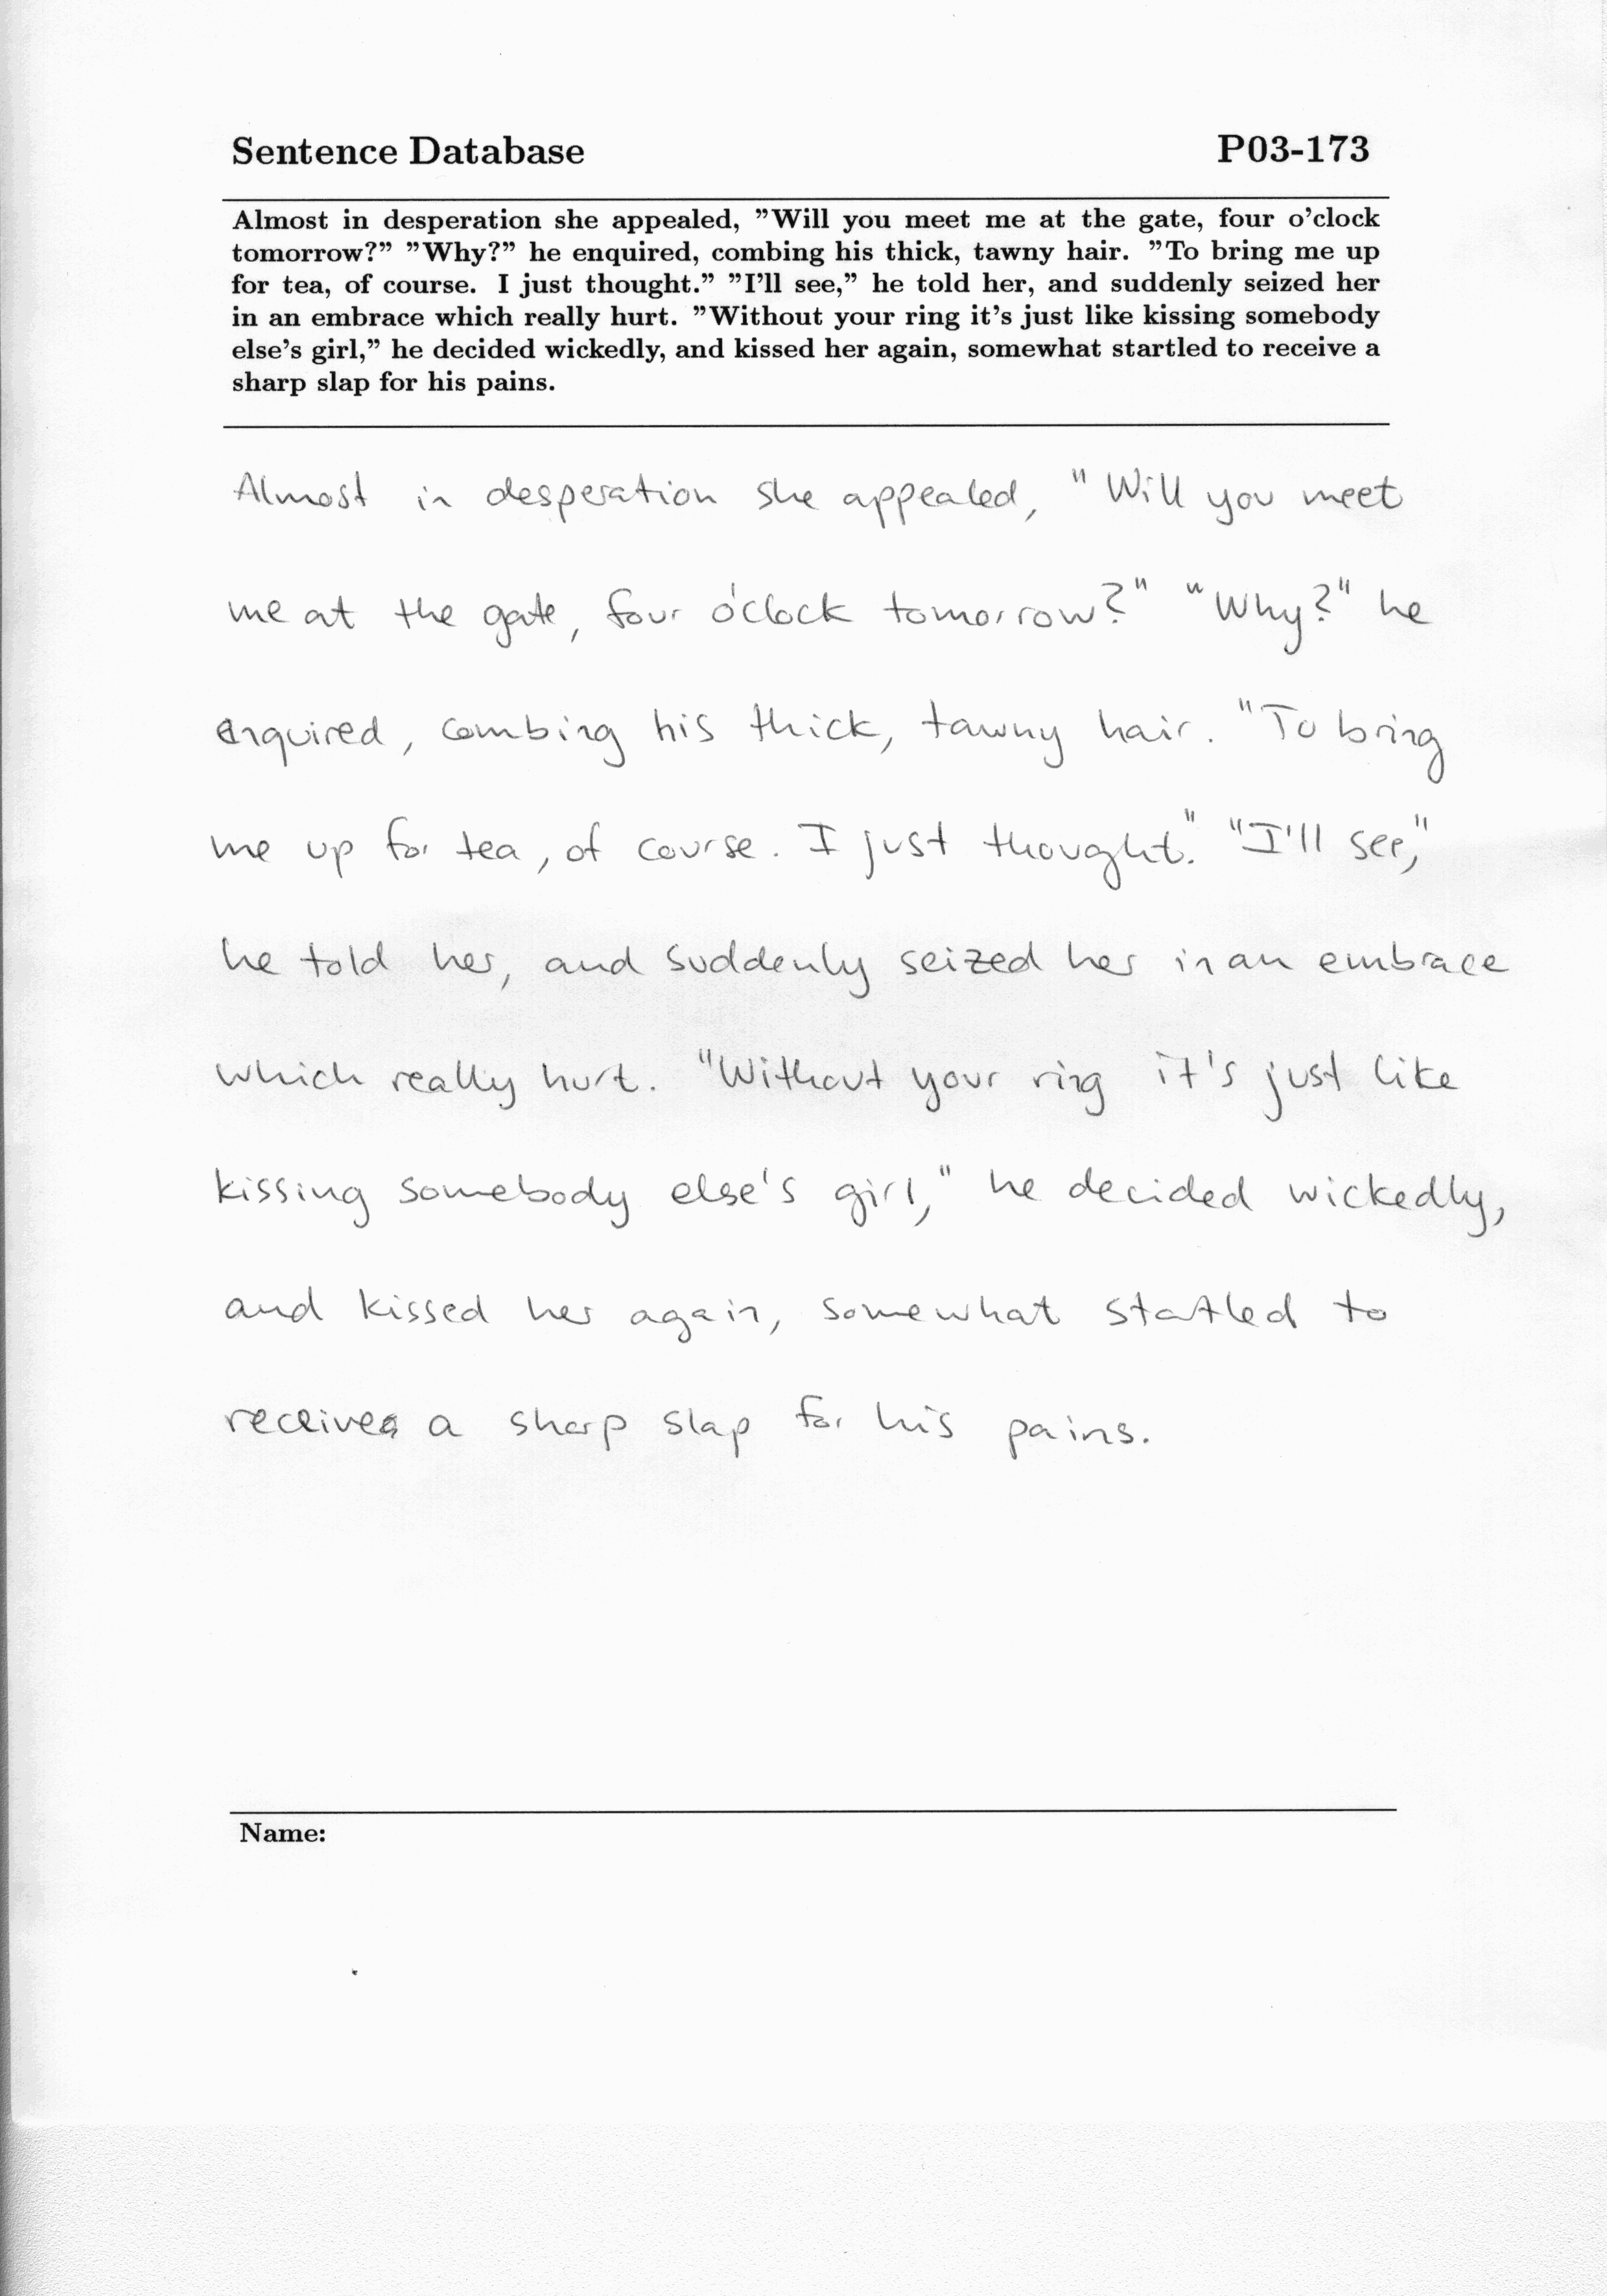 Sentence Database P03-173
Almost in desperation she appealed, ”Will you meet me at the gate, four o’clock
tomorrow?” ”Why?” he enquired, combing his thick, tawny hair. ”To bring me up
for tea, of course. I just thought.” ”I’ll see,” he told her, and suddenly seized her
in an embrace which really hurt. ”Without your ring it’s just like kissing somebody
else’s girl,” he decided wickedly, and kissed her again, somewhat startled to receive a
sharp slap for his pains.
Almost in desperation she appealed, "Will you meet
me at the gate, four o'clock tomorrow?" "Why?" he
enquired, combing his thick, tawny hair. "To bring
me up for tea, of course. I just thought." "I'll see,"
he told her, and suddenly seized her in an embrace
which really hurt. "Without your ring it's just like
kissing somebody else's girl," he decided wickedly,
and kissed her again, somewhat startled to
receive a sharp slap for his pains.
Name: